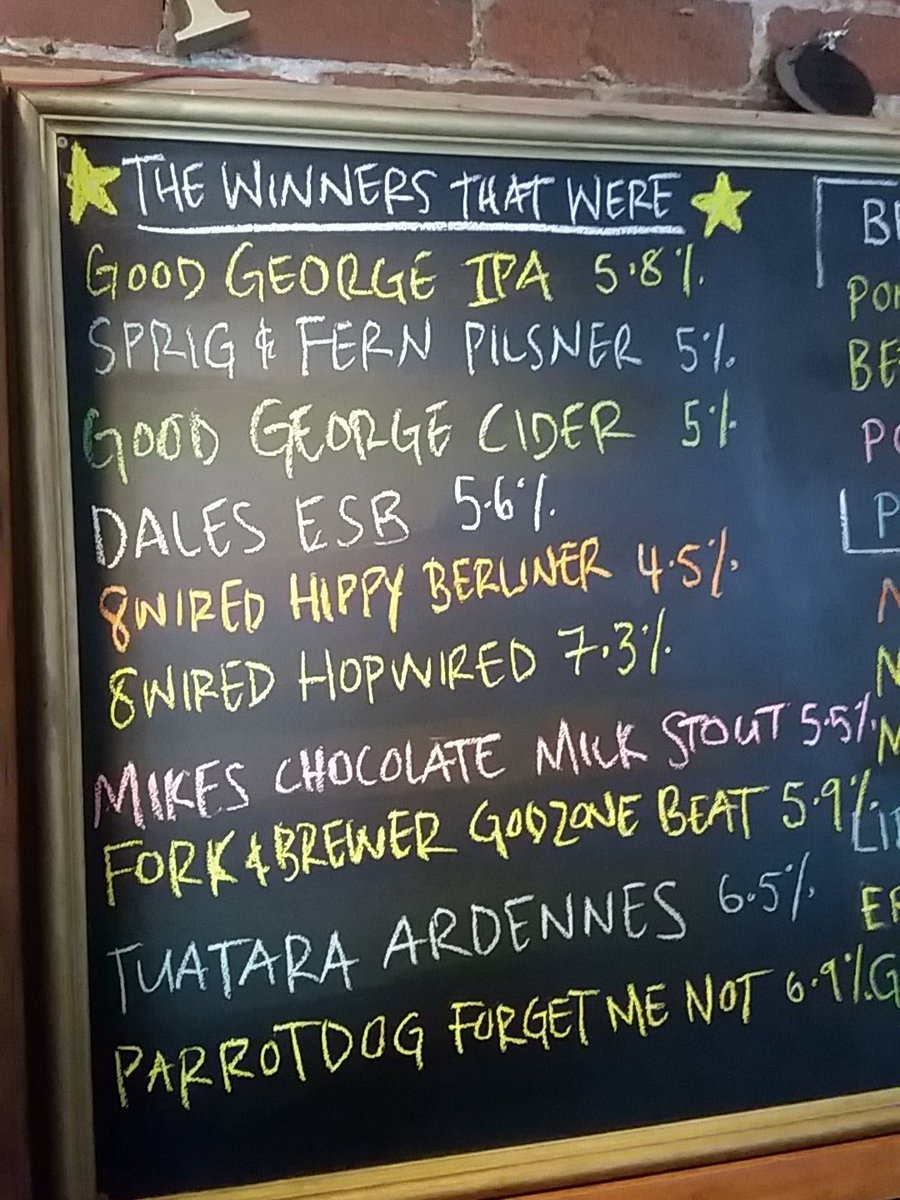 THE WINNERS THAT WERE
GOOD GEORGE IPA 5.8%
SPRIG & FERN PILSNER 5%
GOOD GEORGE CIDER 5%
DALES ESB 5.6%
8WIRED HIPPY BERLINER 4.5%
8WIRED HOPWIRED 7.3%
MIKES CHOCOLATE MILK STOUT 5.5%
FORK & BREWER GODZONE BEAT 5.9%
TUATARA ARDENNES 6.5%
PARROTDOG FORGET ME NOT 6.9%